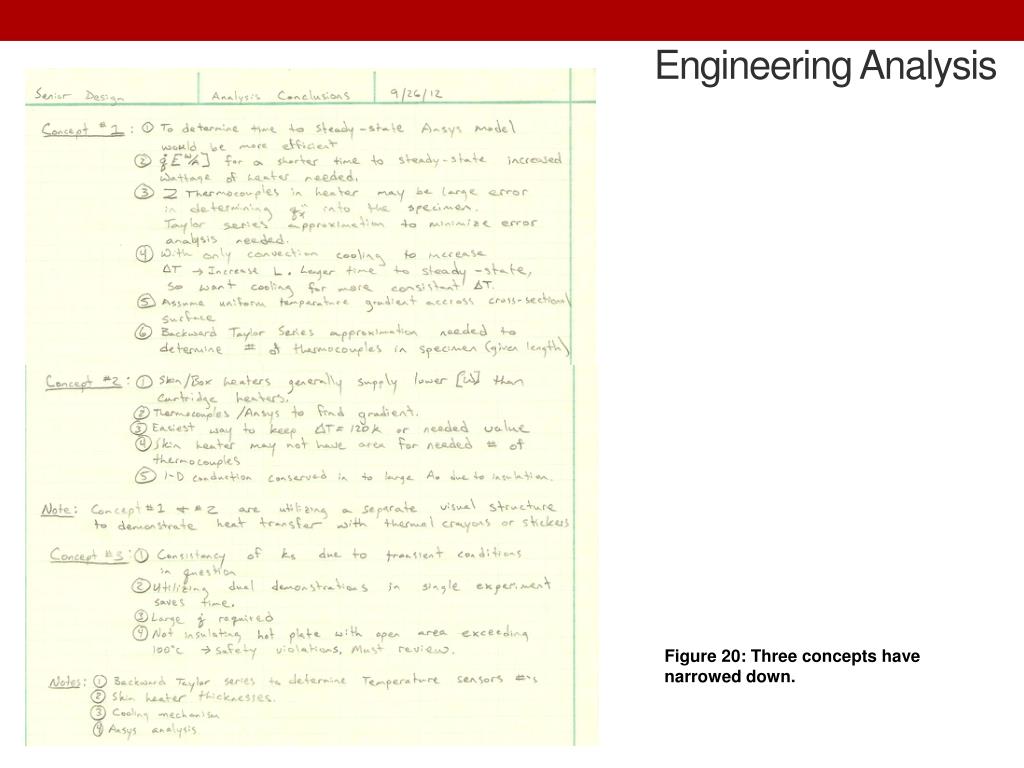 Engineering Analysis
Senior Design Analysis Conclusions 9/26/12
Concept #1: ① To determine time to steady-state Ansys model
would be more efficient
② q̇ E[W/A] for a shorter time to steady-state increased
wattage of heater needed.
③ 2 Thermocouples in heater may be large error
in determining q″x into the specimen.
Taylor series approximation to minimize error
analysis needed.
④ With only convection cooling to increase
ΔT → Increase L. Larger time to steady-state,
so want cooling for more consistant ΔT.
⑤ Assume uniform temperature gradient accross cross-sectional
surface
⑥ Backward Taylor Series approximation needed to
determine # of thermocouples in specimen (given length)
Concept #2: ① Skin/Box heaters generally supply lower [W] than
Cartridge heaters.
② Thermocouples/Ansys to find gradient.
③ Easiest way to keep ΔT= 120k or needed value
④ Skin heater may not have area for needed # of
thermocouples
⑤ 1-D conduction conserved in to large As due to insulation.
Note: Concept #1 + #2 are utilizing a separate visual structure
to demonstrate heat transfer with thermal crayons or stickers
Concept #3: ① Consistancy of ks due to transient conditions
in question
② Utilizing dual demonstrations in single experiment
saves time.
③ Large q̇ required
④ Not insulating hot plate with open area exceeding
100°C → Safety violations. Must review.
Notes: ① Backward Taylor series to determine Temperature sensors #'s
② Skin heater thicknesses.
③ Cooling mechanism
④ Ansys analysis
Figure 20: Three concepts have
narrowed down.